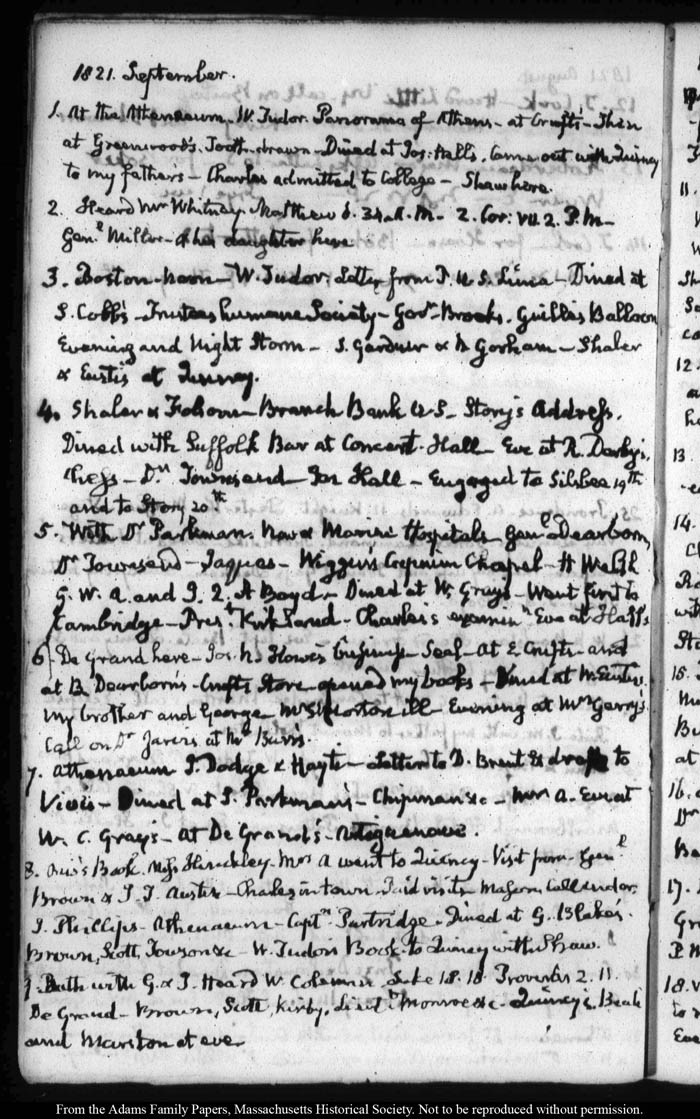 1821. September.
1. At the Athenaeum. W. Tudor. Panorama of Athens - at Crufts - Then
at Greenwood's. Tooth-drawn - Dined at Jos: Halls. Came out with Quincy
to my father's - Charles admitted to College - Shaw here.
2. Heard Mr Whitney. Matthew 6. 34. A.M. - 2. Cor: VII. 2. P.M -
Genl Miller - & his daughter here
3. Boston - noon - W. Tudor. Letter from Lima - Dined at
S. Cobb's - Trustees humane Society - Govr Brooks. Guille's Balloon
Evening and Night Storm - S. Gardner & B Gorham - Shaler
& Eustis at Quincy.
4. Shaler & Folsom - Branch Bank U.S. Story's Address.
Dined with Suffolk Bar at Concert-Hall - Eve at R. Derby's.
Chess - Dr Townsend - Jos Hall - Engaged to Silsbee 19th
and to Story 20th
5. With Dr Parkman. Navl & Marine Hospitals Genl Dearborn,
Dr Townsend - Jaques - Wiggin's Chapel - H Welsh
G. W. A. and J. Q. A Boyd - Dined at W. Gray's - Went first to
Cambridge - Prest Kirkland - Charles's Eve at Hall's
6. De Grand here - Jos. N. Howe's Seal - At E Crufts - and
at B. Dearborn's - Crufts Store opened my books - Dined at
my brother and George - ill - Evening at Mrs Gerry's
Call on Dr Jarvis at Mrs
7. Athenaeum J. Dodge & - Letter to D. Brent & draft to
- Dined at S. Parkman's - Chipman &c - Mrs A. Eve at
W. C. Gray's - At De Grand's -
8. Book. Miss Hinckley. Mrs A went to Quincy - Visit from Genl
Brown & J. T. Austin - Charles in town. Paid visits - call under
J. Phillips - Athenaeum - Captn Partridge. Dined at G. Blake's.
Brown, Scott, Towson &c - W. Tudor's Book - To Quincy with Shaw.
9. Bath with G. & J. Heard W. Luke 18. 18. Proverbs 2. 11.
De Grand - Brown, Scott, Kirby, Lieutt Monroe &c - Quincy's, Beale
and Marston at eve
From the Adams Family Papers, Massachusetts Historical Society. Not to be reproduced without permission.